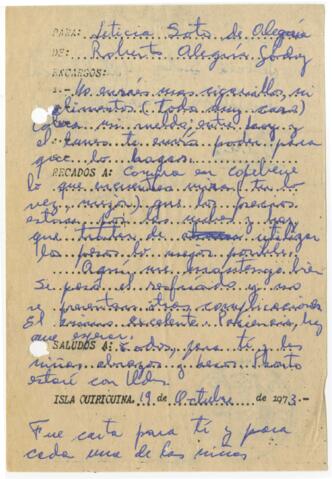 PARA: Leticia Soto de Alegría
DE: Roberto Alegría Godoy
ENCARGOS:
1.- No enviés mas cigarrillos, ni
alimentos (todo muy caro)
cobra mi sueldo entre hoy y
el lunes te envío poder para
que lo hagas.
RECADOS A: Compra en
lo que (tu lo
ves mejor) que los precios
estan por las nubes y hay
que tratar de utilizar
los pesos lo mejor posible.
Aquí me mantengo bien
Se pasó el resfriado y no
se presentan otras complicaciones
El animo excelente. Paciencia, hay
que esperar.
SALUDOS A: Todos, para ti y las
niñas abrazos y besos. Pronto
estaré con Uds.
ISLA QUIRIQUINA, 19 de Octubre de 1973.-
Fue carta para ti y para
cada una de las niñas